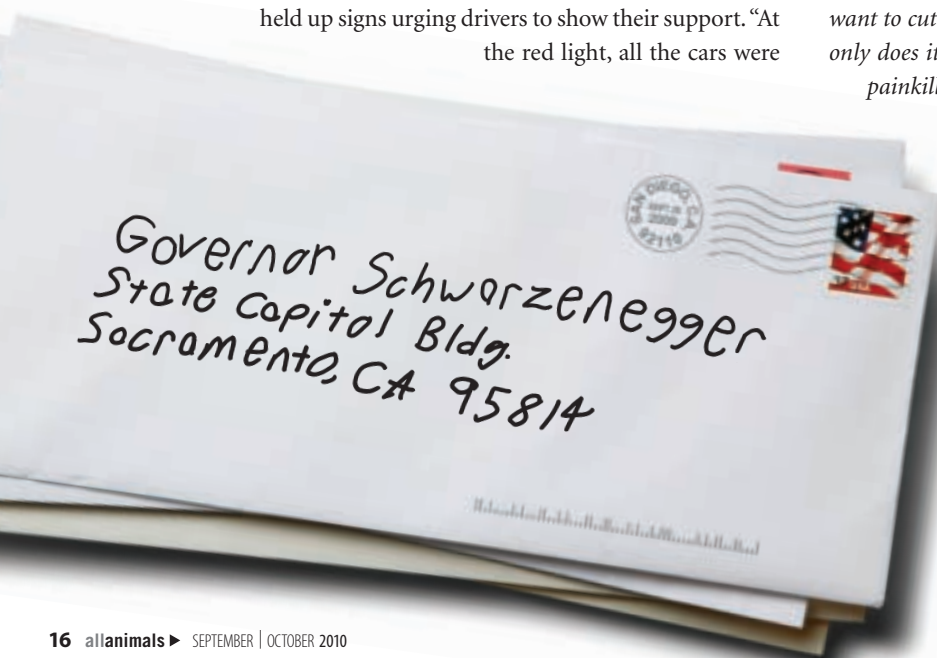 held up signs urging drivers to show their support. “At
the red light, all the cars were
want to cut
only does it
painkill
SAN DIEGO, CA
2009
92110
Governor Schwarzenegger
State Capitol Bldg.
Sacramento, CA 95814
16 allanimals ▶ SEPTEMBER | OCTOBER 2010